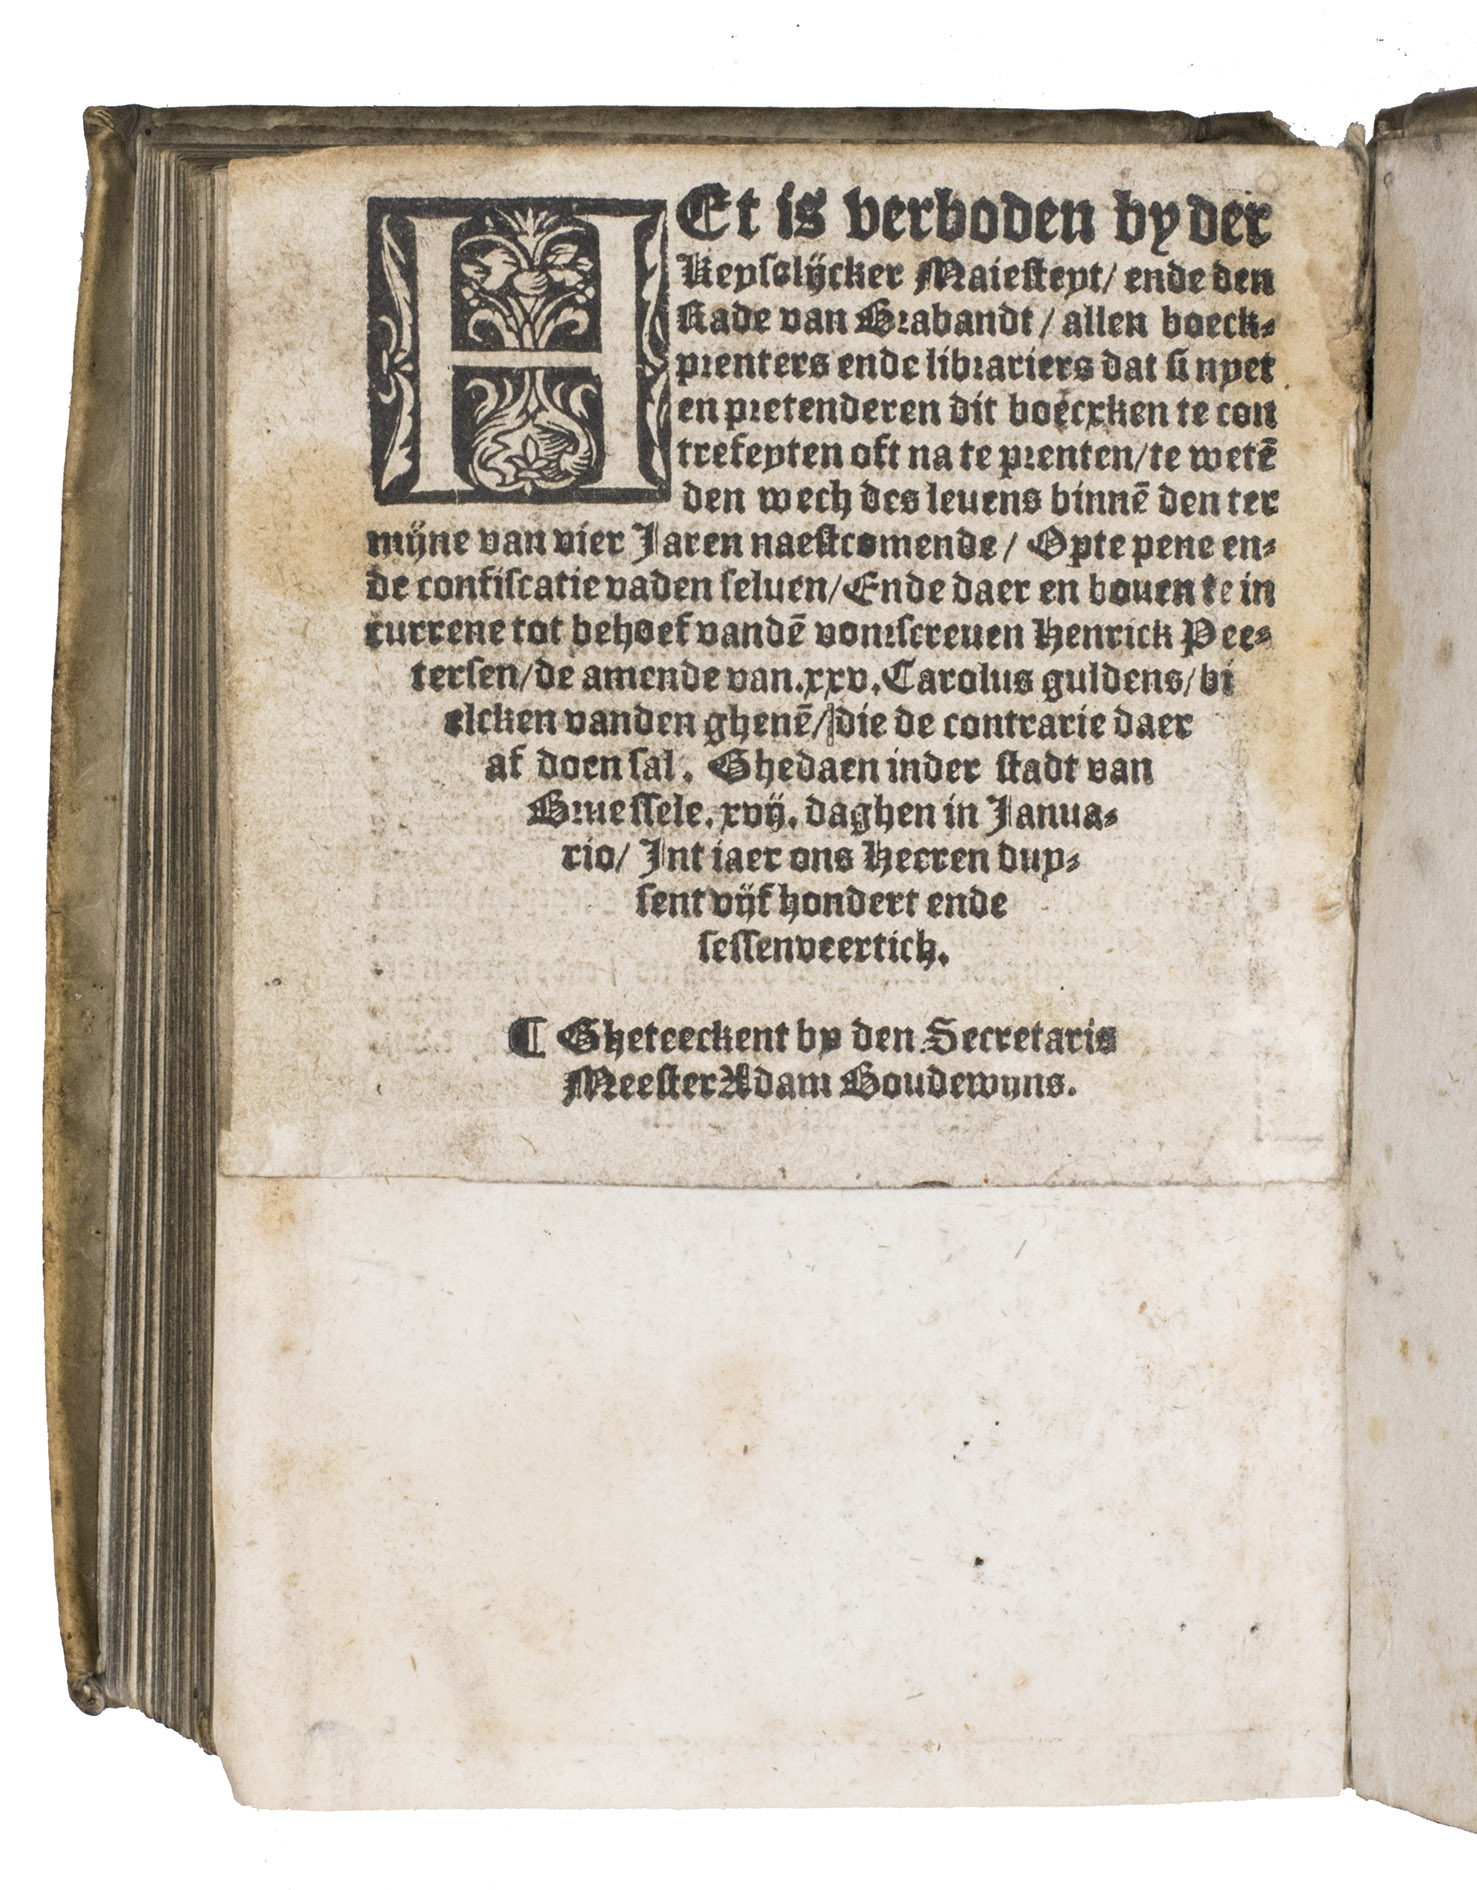 HEt is verboden by der
Keyselijcker Maiesteyt/ ende den
Rade van Brabandt / allen boeck-
prenters ende librariers dat si nyet
en pretenderen dit boecxken te con
trefeyten oft na te prenten/ te wetē
den wech des leuens binnē den ter
mijne van vier Jaren naestcomende/ Opte pene en-
de confiscatie vaden seluen/ Ende daer en bouen te in
currene tot behoef vandē vorrscreuen Henrick Pee-
tersen/ de amende van .xxv. Carolus guldens/ bi
elcken vanden ghenē/ die de contrarie daer
af doen sal. Ghedaen inder stadt van
Bruessele. xvij. daghen in Janua-
rio/ Int iaer ons Heeren duy-
sent vijf hondert ende
sessenveertich.
¶ Gheteeckent by den Secretaris
Meester Adam Boudewijns.